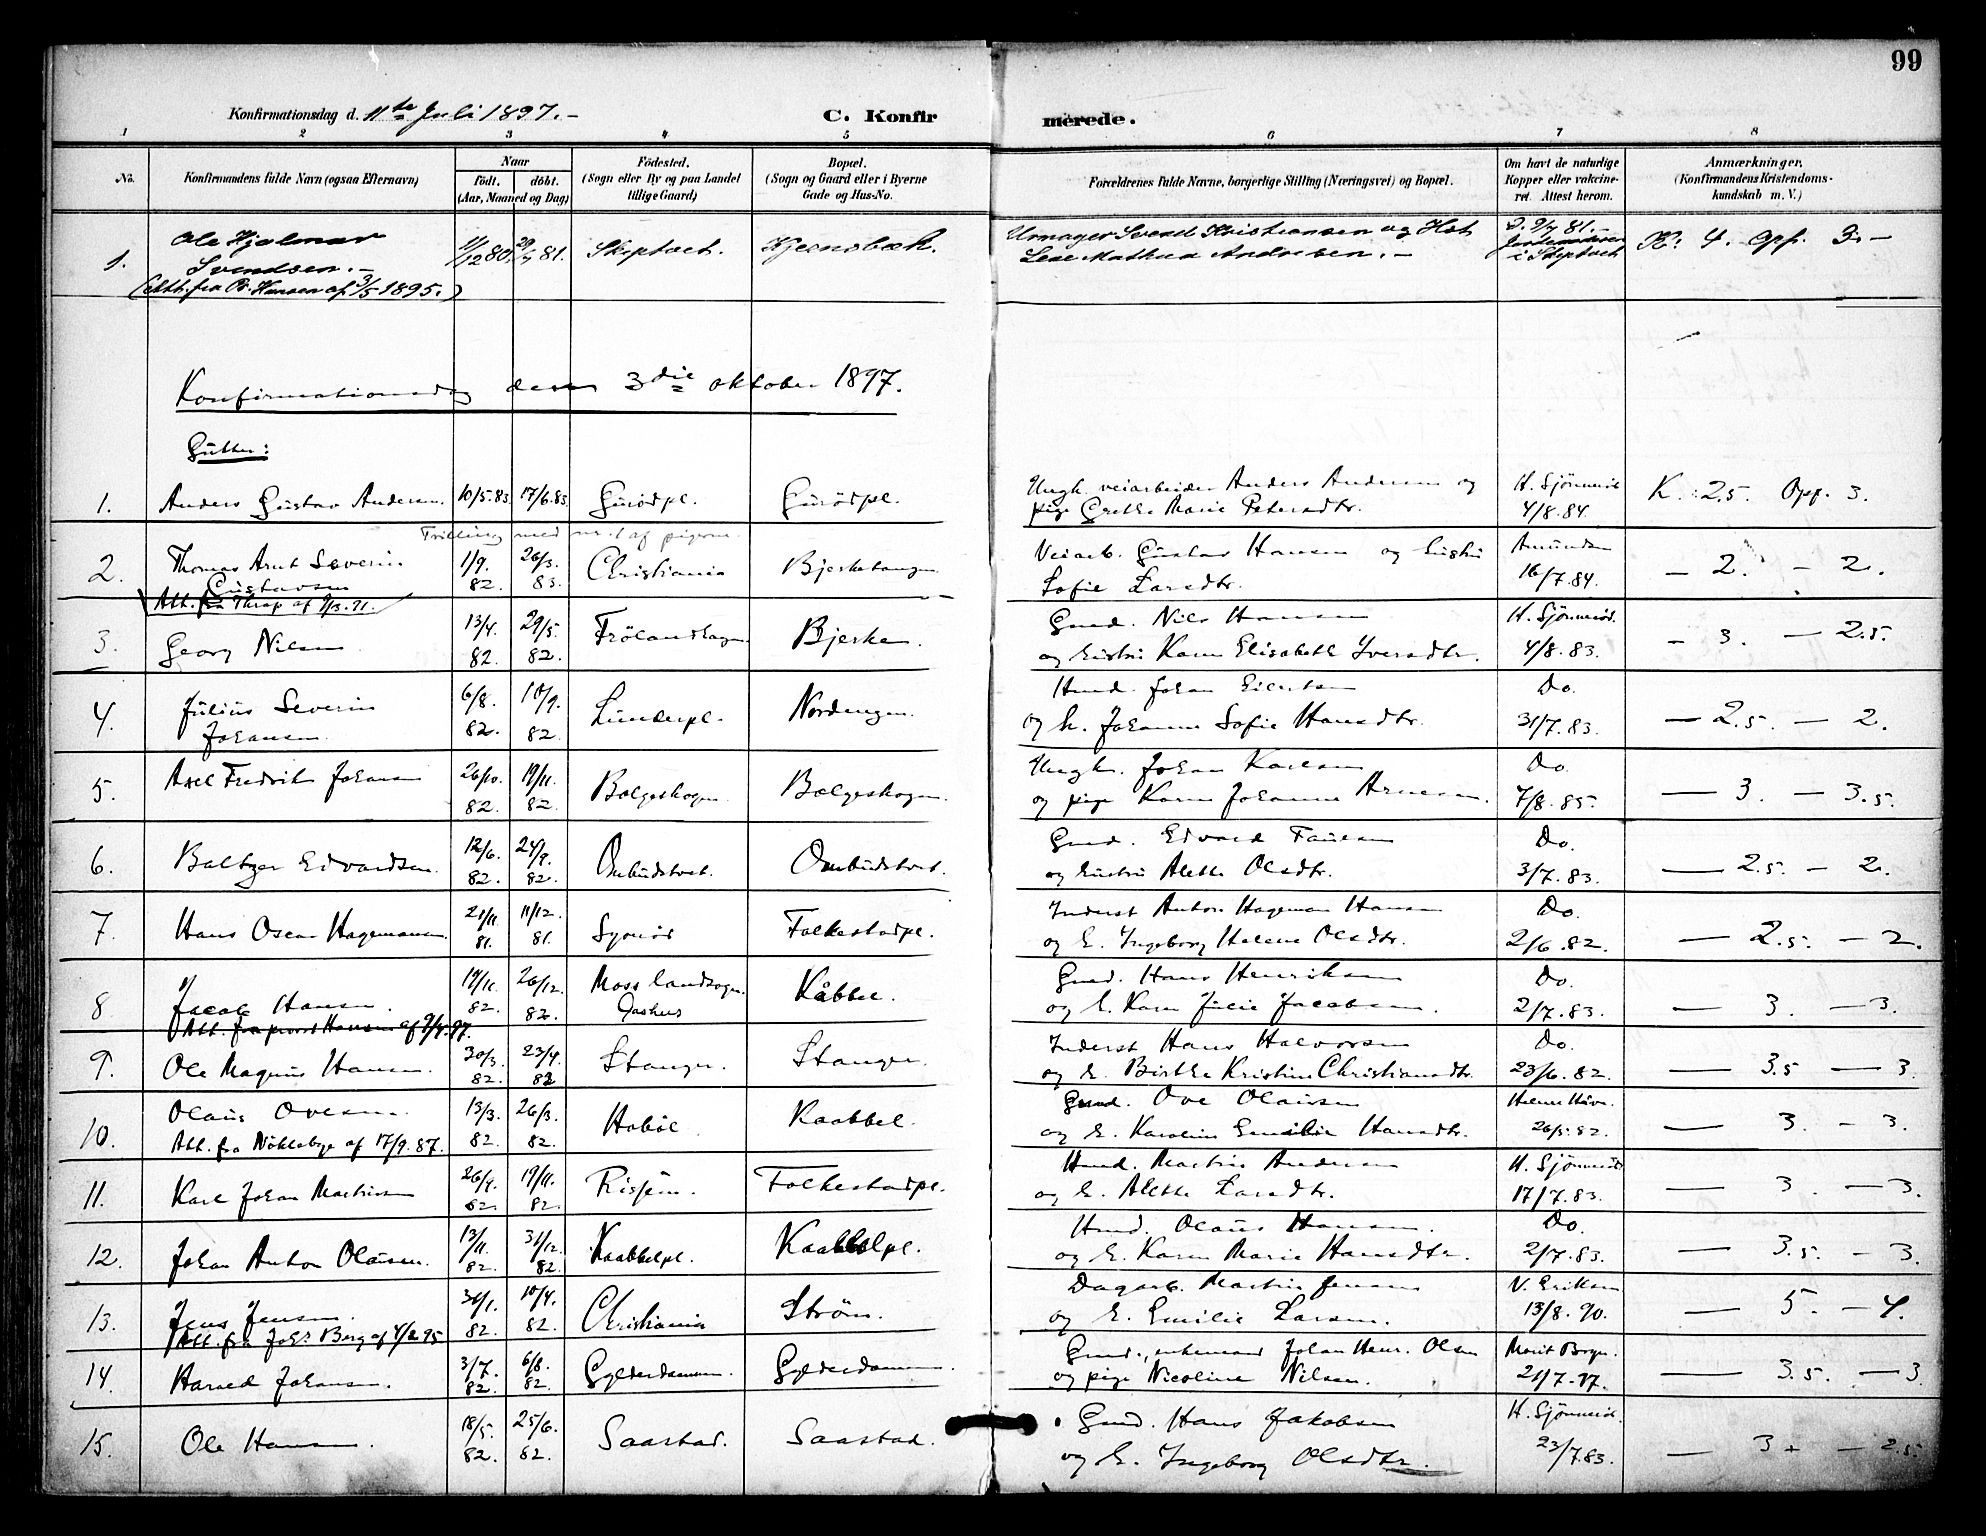 99
Konfirmationsdag d. 11te Juli 1897.-
C. Konfirmerede.
1 2 3 4 5 6 7 8
No.
Konfirmandens fulde Navn (ogsaa Efternavn)
Naar
født. døbt.
(Aar, Maaned og Dag)
Fødested.
(Sogn eller By og paa Landet
tillige Gaard)
Bopæl.
(Sogn og Gaard eller i Byerne
Gade og Hus-No.
Forældrenes fulde Navne, borgerlige Stilling (Næringsvei) og Bopæl.
Om havt de naturlige
Kopper eller vaccine-
ret. Attest herom.
Anmærkninger.
(Konfirmandens Kristendoms-
kundskab m. V.)
1. Ole Hjalmar
Svendsen.-
(Att. fra Hansen af 3/5 1895.)
11/12 80. 29/7 81. Skeptvet. Kjernsbæk.
Urmager Svend Kristiansen og Hst.
Andresen.-
9/7 81.
i Skiptvet
K: 4. Opf. 3.-
Konfirmationsdag den 3die oktober 1897.
Gutter:
1. Anders Gustav Andersen. 10/5.83. 17/6.83. Gurødpl. Gurødpl. Ungk. veiarbeider Anders Andersen og
pige Grethe Marie Petersdtr. H. Sjønnerød 4/8.84. K. 2.5. Opf. 3.
Trilling med nr. 1 af pigerne.
2. Thomas Arnt Severin
Gustavsen
Att. fra Thrap af 9/3.91.
1/9. 82. 26/3. 83. Christiania Bjerketangen Veiarb. Gustav Hansen og hustru
Sofie Larsdtr. Amundsen 16/7.84. - 2. - 2.
3. Georg Nilsen 13/4. 82. 29/5. 82. Frølandhagen Bjerke Gmd. Nils Hansen
og hustru Karen Elisabeth Iversdtr. H. Sjønnerød. 4/8.83. - 3. - 2.5.
4. Julius Severin
Johansen 6/8. 82. 10/9. 82. Lunderpl. Nordengen. Hmd. Johan Eilertsen
og h. Johanne Sofie Hansdtr. Do. 31/7.83. - 2.5. - 2.
5. Axel Fredrik Johansen 26/10. 82. 19/11. 82. Bolgeskogen. Bolgeskogen. Ungk. Johan Karlsen
og pige Karen Johanne Arnesen. Do. 7/8.85. - 3. - 3.5.
6. Baltzer Edvardsen. 12/6. 82. 24/9. 82. Ombudstvet. Ombudstvet. Gmd. Edvard Paulsen
og hustru Alette Olsdtr. Do. 3/7.83. - 2.5. - 2.
7. Hans Oscar Hagemansen. 21/11. 81. 11/12. 81. Folkestadpl. Inderst Anton Hageman Hansen
og h. Ingeborg Helene Olsdtr. Do. 2/6.82. - 2.5. - 2.
8 Jacob Hansen.
Att. fra provst Hansen af 9/4.97.
19/11. 82. 26/12. 82. Moss landsogn. Kåbbel. Gmd. Hans Henriksen
og h. Karen Julie Jacobsen. Do. 2/7.83. - 3. - 3.
9. Ole Magnus Hansen. 30/3. 82. 23/4. 82 Stanger. Stanger. Inderst Hans Halvorsen
og h. Birthe Kristine Christiansdtr. Do. 23/6.82. - 3.5 - 3.
10. Olaus Ovesen.
Att. fra Nøkleby af 17/9.87.
13/3. 82. 26/3. 82. Hobøl. Kaabbel. Gmd. Ove Olausen
og h. Karoline Emilie Hansdtr. 26/5.82. - 3. - 3.
11. Karl Johan Martinsen 26/9. 82. 19/11. 82. Folkestadpl. Hmd. Martin Andersen
og h. Alette Larsdtr. H. Sjønnerød 17/7.83. - 3. - 3.
12. Johan Anton Olausen. 13/11. 82. 31/12. 82. Kaabbelpl. Kaabbelpl. Hmd. Olaus Hansen.
og h. Karen Marie Hansdtr. Do. 2/7.83. - 3.5. - 3.
13. Jens Jensen.
Att. fra Johs Berg af 4/2.95
82. 10/4. 82. Christiania Strøm. Dagarb. Martin Jensen
og h. Emilie Larsen. V. Eriksen 13/8.90. - 5. - 4.
14. Harald Johansen. 3/7. 82. 6/8. 82. Gylderdammen Gylderdammen. Gmd., enkemand Johan Henr. Olsen
og pige Nicoline Nilsen. - 3.5. - 3.
15. Ole Hansen. 18/5. 82. 25/6. 82. Saastad. Saastad. Gmd. Hans Jakobsen
og h. Ingeborg Olsdtr. H. Sjønnerød. 23/7.83. - 3+ - 2.5.